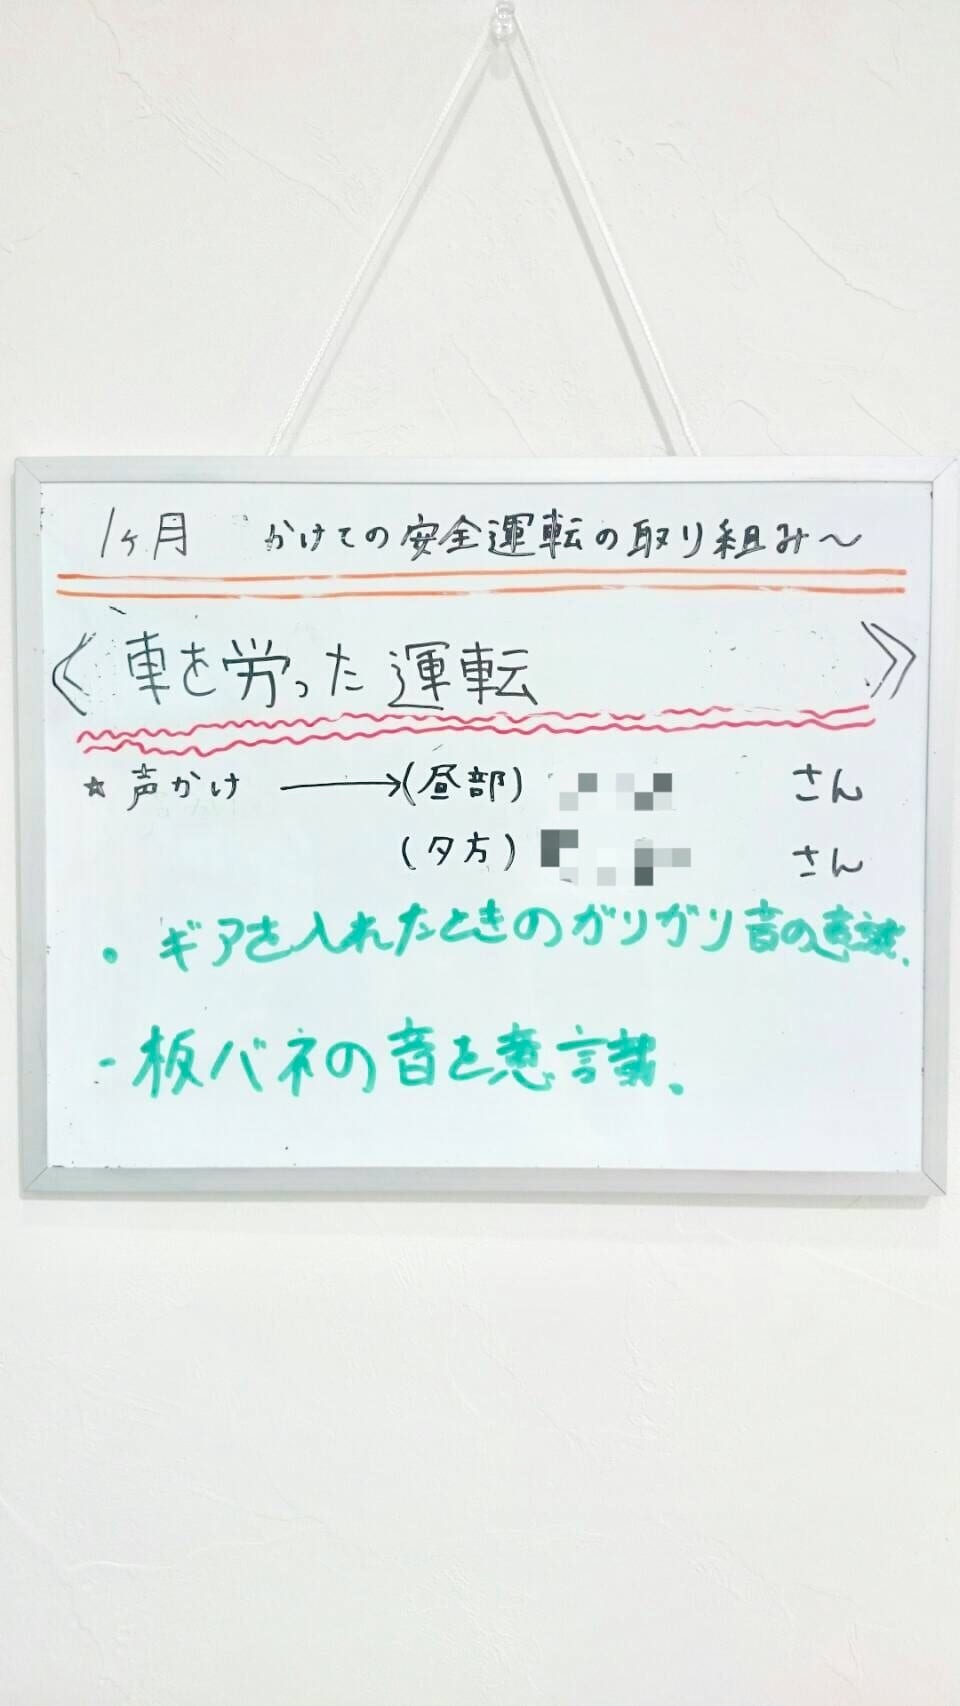 1ヶ月 かけての安全運転の取り組み〜
《車を労った運転》
☆声かけ→(昼部) さん
(夕方) さん
・ギアを入れたときのガリガリ音の意識.
・板バネの音を意識.